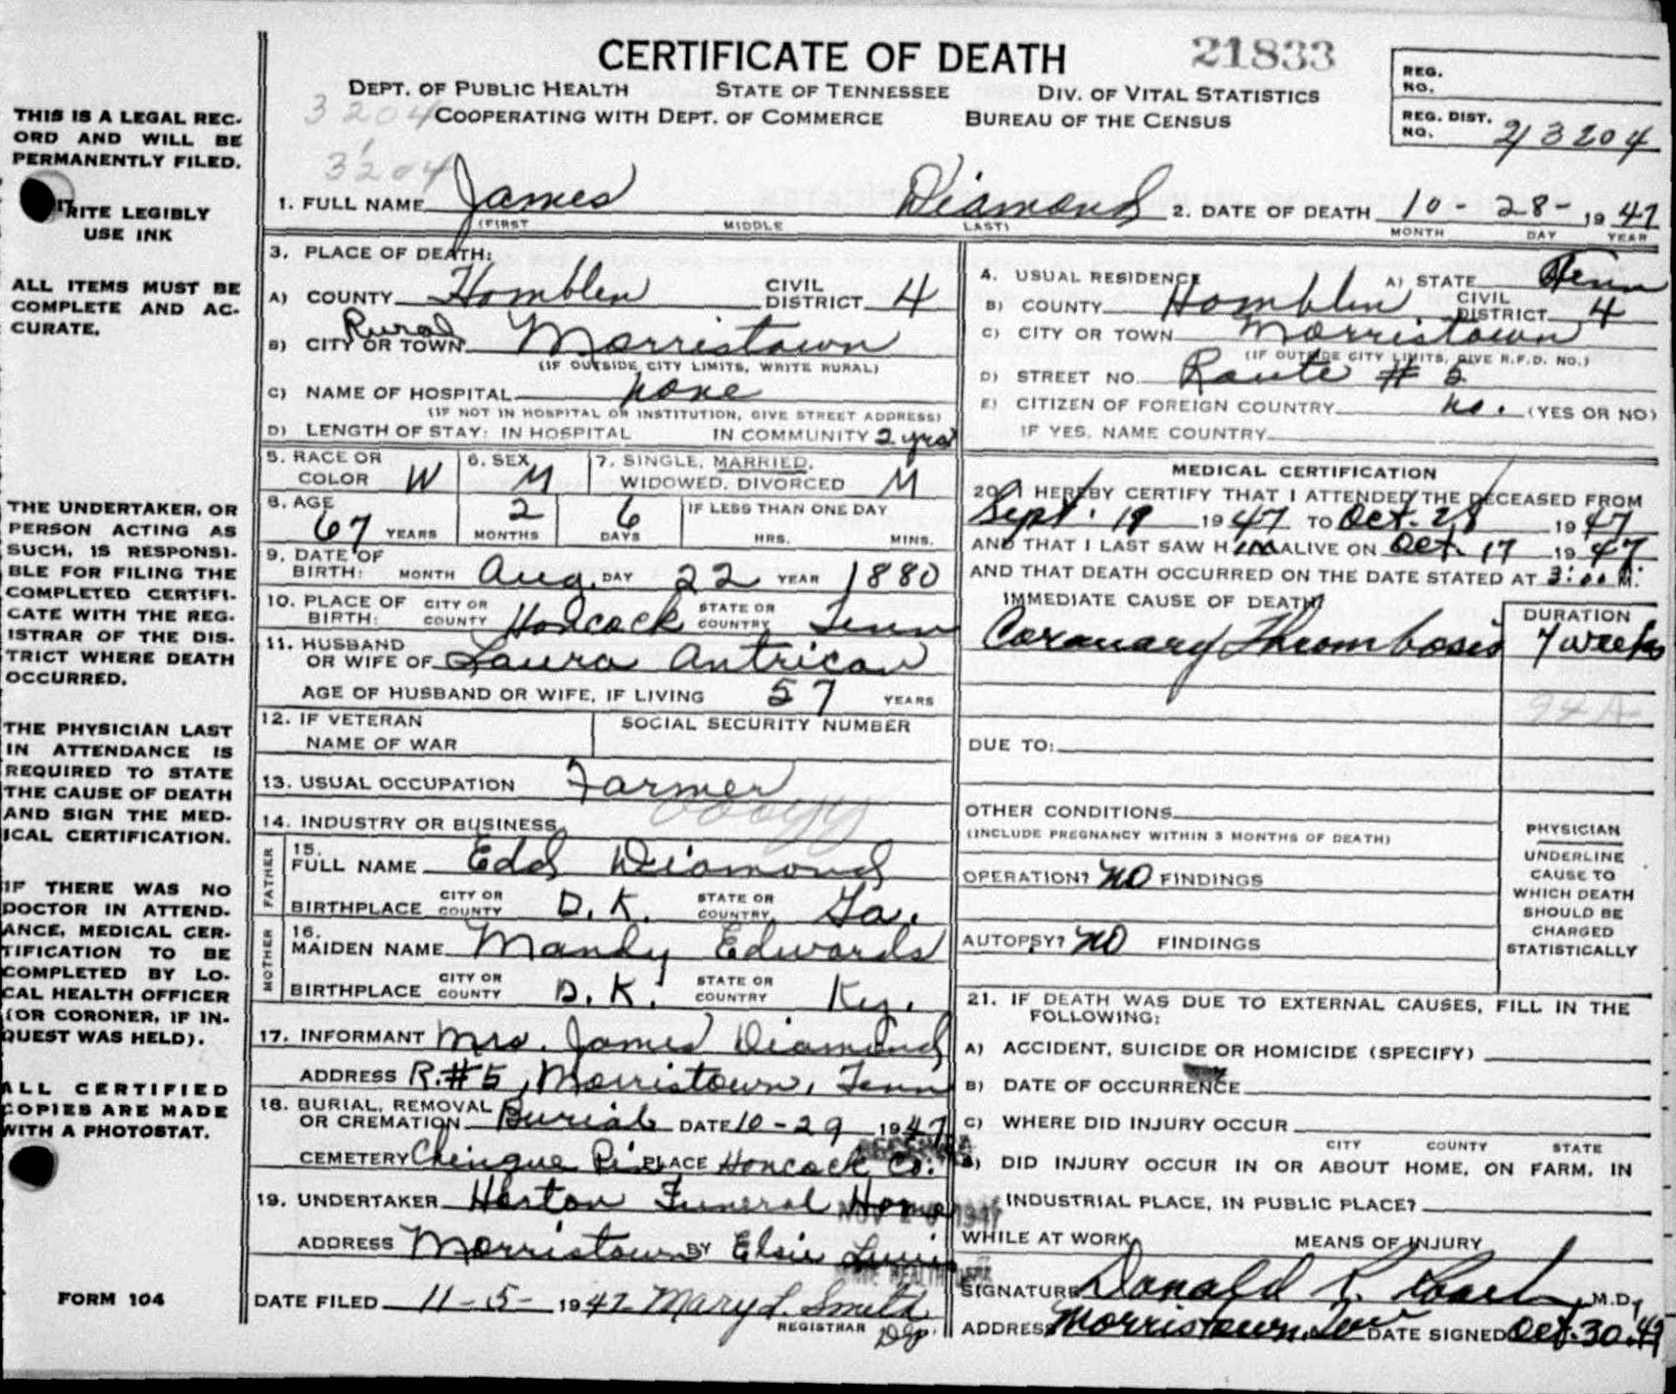 CERTIFICATE OF DEATH
21833
DEPT. OF PUBLIC HEALTH STATE OF TENNESSEE DIV. OF VITAL STATISTICS
3204 COOPERATING WITH DEPT. OF COMMERCE BUREAU OF THE CENSUS
REG. NO.
REG. DIST. NO. 23204
3204
THIS IS A LEGAL REC-
ORD AND WILL BE
PERMANENTLY FILED.
RITE LEGIBLY
USE INK
ALL ITEMS MUST BE
COMPLETE AND AC-
CURATE.
THE UNDERTAKER, OR
PERSON ACTING AS
SUCH, IS RESPONSI-
BLE FOR FILING THE
COMPLETED CERTIFI-
CATE WITH THE REG-
ISTRAR OF THE DIS-
TRICT WHERE DEATH
OCCURRED.
THE PHYSICIAN LAST
IN ATTENDANCE IS
REQUIRED TO STATE
THE CAUSE OF DEATH
AND SIGN THE MED-
ICAL CERTIFICATION.
IF THERE WAS NO
DOCTOR IN ATTEND-
ANCE, MEDICAL CER-
TIFICATION TO BE
COMPLETED BY LO-
CAL HEALTH OFFICER
(OR CORONER, IF IN-
QUEST WAS HELD).
ALL CERTIFIED
COPIES ARE MADE
WITH A PHOTOSTAT.
FORM 104
1. FULL NAME James Diamond 2. DATE OF DEATH 10-28-1947
(FIRST MIDDLE LAST) MONTH DAY YEAR
3. PLACE OF DEATH:
A) COUNTY Hamblen CIVIL DISTRICT 4
Rural
B) CITY OR TOWN Morristown
(IF OUTSIDE CITY LIMITS, WRITE RURAL)
C) NAME OF HOSPITAL none
(IF NOT IN HOSPITAL OR INSTITUTION, GIVE STREET ADDRESS)
D) LENGTH OF STAY: IN HOSPITAL IN COMMUNITY 2 yrs
5. RACE OR COLOR W 6. SEX M 7. SINGLE, MARRIED, WIDOWED, DIVORCED M
8. AGE 67 YEARS 2 MONTHS 6 DAYS IF LESS THAN ONE DAY HRS. MINS.
9. DATE OF BIRTH: MONTH Aug. DAY 22 YEAR 1880
10. PLACE OF BIRTH: CITY OR COUNTY Hancock STATE OR COUNTRY Tenn
11. HUSBAND OR WIFE OF Laura Antrican
AGE OF HUSBAND OR WIFE, IF LIVING 57 YEARS
12. IF VETERAN NAME OF WAR SOCIAL SECURITY NUMBER
13. USUAL OCCUPATION Farmer
14. INDUSTRY OR BUSINESS
FATHER
15. FULL NAME Edd Diamond
BIRTHPLACE CITY OR COUNTY D.K. STATE OR COUNTRY Ga.
MOTHER
16. MAIDEN NAME Mandy Edwards
BIRTHPLACE CITY OR COUNTY D.K. STATE OR COUNTRY Ky.
17. INFORMANT Mrs. James Diamond
ADDRESS R.#5, Morristown, Tenn
18. BURIAL, REMOVAL OR CREMATION Burial DATE 10-29 1947
CEMETERY PLACE Hancock Co.
19. UNDERTAKER Funeral Home
NOV 1947
ADDRESS Morristown BY Elsie
DATE FILED 11-5-1947 Mary L. Smith
REGISTRAR Dep.
4. USUAL RESIDENCE A) STATE Tenn
B) COUNTY Hamblen CIVIL DISTRICT 4
C) CITY OR TOWN Morristown
(IF OUTSIDE CITY LIMITS, GIVE R.F.D. NO.)
D) STREET NO. Route # 5
E) CITIZEN OF FOREIGN COUNTRY no. (YES OR NO)
IF YES, NAME COUNTRY
MEDICAL CERTIFICATION
20. I HEREBY CERTIFY THAT I ATTENDED THE DECEASED FROM
Sept. 19 1947 TO Oct. 28 1947
AND THAT I LAST SAW HIM ALIVE ON Oct. 17 1947
AND THAT DEATH OCCURRED ON THE DATE STATED AT 3:00 M.
IMMEDIATE CAUSE OF DEATH DURATION
Coronary Thrombosis 7 weeks
94A
DUE TO:
OTHER CONDITIONS
(INCLUDE PREGNANCY WITHIN 3 MONTHS OF DEATH)
OPERATION? NO FINDINGS
AUTOPSY? NO FINDINGS
PHYSICIAN
UNDERLINE
CAUSE TO
WHICH DEATH
SHOULD BE
CHARGED
STATISTICALLY
21. IF DEATH WAS DUE TO EXTERNAL CAUSES, FILL IN THE
FOLLOWING:
A) ACCIDENT, SUICIDE OR HOMICIDE (SPECIFY)
B) DATE OF OCCURRENCE
C) WHERE DID INJURY OCCUR
CITY COUNTY STATE
D) DID INJURY OCCUR IN OR ABOUT HOME, ON FARM, IN
INDUSTRIAL PLACE, IN PUBLIC PLACE?
WHILE AT WORK MEANS OF INJURY
SIGNATURE Donald R. Roach, M.D.
ADDRESS Morristown, DATE SIGNED Oct. 30, 47